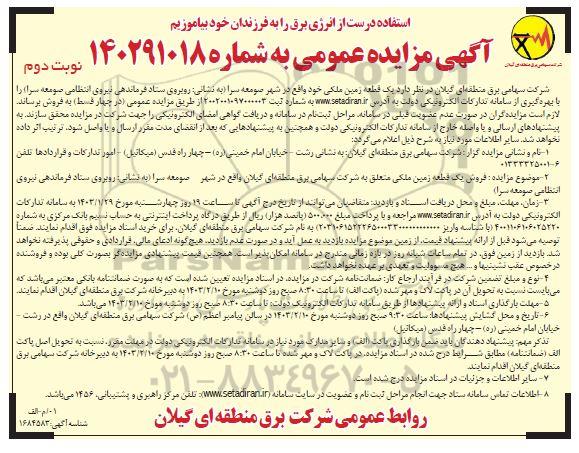 استفاده درست از انرژی برق را به فرزندان خود بیاموزیم
آگهی مزایده عمومی به شماره ۱۴۰۲۹۱۰۱۸ نوبت دوم
شرکت سهامی برق منطقه‌ای گیلان
شرکت سهامی برق منطقه‌ای گیلان در نظر دارد یک قطعه زمین ملکی خود واقع در شهر صومعه سرا (به نشانی: روبروی ستاد فرماندهی نیروی انتظامی صومعه سرا) را
با بهره‌گیری از سامانه تدارکات الکترونیکی دولت به آدرس www.setadiran.ir به شماره ثبت از طریق مزایده عمومی (در چهار قسط) به فروش برساند.
لازم است مزایده‌گران در صورت عدم عضویت قبلی در سامانه، مراحل ثبت‌نام در سامانه و دریافت گواهی امضای الکترونیکی را جهت شرکت در مزایده محقق سازند. به
پیشنهادهای ارسالی و یا واصله خارج از سامانه تدارکات الکترونیکی دولت و همچنین به پیشنهادهایی که بعد از انقضای مدت مقرر ارسال و یا واصل شود، ترتیب اثر داده
نخواهد شد. سایر اطلاعات مورد نیاز به شرح ذیل اعلام می‌گردد:
۱–نام و نشانی مزایده گزار : شرکت سهامی برق منطقه‌ای گیلان: به نشانی رشت – خیابان امام خمینی(ره) –چهار راه قدس (میکائیل) – امور تدارکات و قراردادها تلفن
۲–موضوع مزایده : فروش یک قطعه زمین ملکی متعلق به شرکت سهامی برق منطقه‌ای گیلان واقع در شهر صومعه سرا (به نشانی: روبروی ستاد فرماندهی نیروی
انتظامی صومعه سرا)
۳–زمان، مهلت، مبلغ و محل دریافت اسناد و بازدید: متقاضیان می‌توانند از تاریخ درج آگهی تا ساعت ۱۹ روز چهارشنبه مورخ ۱۴۰۳/۱/۲۹ به سامانه تدارکات
الکترونیکی دولت به آدرس www.setadiran.ir مراجعه و با پرداخت مبلغ ۵۰۰.۰۰۰ (پانصد هزار) ریال از طریق درگاه پرداخت اینترنتی به حساب نسیم بانک مرکزی به شماره
به نام شرکت سهامی برق منطقه‌ای گیلان، برای خرید اسناد مزایده فوق اقدام نمایند. ضمناً
توصیه می‌شود قبل از ارائه پیشنهاد قیمت، از زمین موضوع مزایده بازدید به عمل آید و در صورت عدم بازدید، هیچ‌گونه ادعای مالی، قراردادی و حقوقی پذیرفته نخواهد
شد. بازدید از زمین فوق، در تمام ساعات شبانه روز در بازه زمانی مندرج در سامانه امکان‌پذیر است. همچنین قیمت پیشنهادی مزایده‌گر بصورت کلی بوده و فروشنده
درخصوص عقب نشینیها و ... هیچ مسوولیت و تعهدی بر عهده نخواهد داشت.
۴– نوع و مبلغ تضمین شرکت در فرآیند ارجاع کار: ضمانت‌نامه شرکت در مزایده، در اسناد مزایده تعیین شده است که به صورت ضمانتنامه بانکی معتبر می‌باشد که
می‌بایست نسبت به تحویل آن در پاکت لاک و مهر شده (پاکت الف) تا ساعت ۸:۳۰ صبح روز دوشنبه مورخ ۱۴۰۳/۲/۱۰ به دبیرخانه شرکت برق منطقه‌ای گیلان اقدام نمایند.
۵– مهلت بارگذاری اسناد و ارائه پیشنهادها از طریق سامانه تدارکات الکترونیک دولت: تا ساعت ۸:۳۰ صبح روز دوشنبه مورخ ۱۴۰۳/۲/۱۰ می‌باشد.
۶–تاریخ و محل گشایش پیشنهادها: ساعت ۸:۳۰ صبح روز دوشنبه مورخ ۱۴۰۳/۲/۱۰ در سالن پیامبر اعظم (ص) شرکت سهامی برق منطقه‌ای گیلان واقع در رشت –
خیابان امام خمینی (ره) –چهار راه قدس (میکائیل)
تذکر مهم: پیشنهاد دهندگان باید ضمن بارگذاری پاکت (الف) و سایر مدارک مورد نیاز در سامانه تدارکات الکترونیکی دولت در مهلت مقرر، نسبت به تحویل اصل پاکت
الف (ضمانتنامه) مطابق شرایط درج شده در اسناد مزایده، در پاکت لاک و مهر شده تا ساعت ۸:۳۰ صبح روز دوشنبه مورخ ۱۴۰۳/۲/۱۰ به دبیرخانه شرکت سهامی برق
منطقه‌ای گیلان اقدام نمایند.
۷– سایر اطلاعات و جزئیات در اسناد مزایده درج شده است.
۸–اطلاعات تماس سامانه ستاد جهت انجام مراحل ثبت نام و عضویت در سایت سامانه (www.setadiran.ir): تلفن مرکز راهبری و پشتیبانی، ۱۴۵۶ می‌باشد.
روابط عمومی شرکت برق منطقه ای گیلان
۰۱/م–الف
شناسه آگهی: ۱۶۸۴۵۸۳
۰۲۱-۸۸۳۴۹۶۷۰-۵